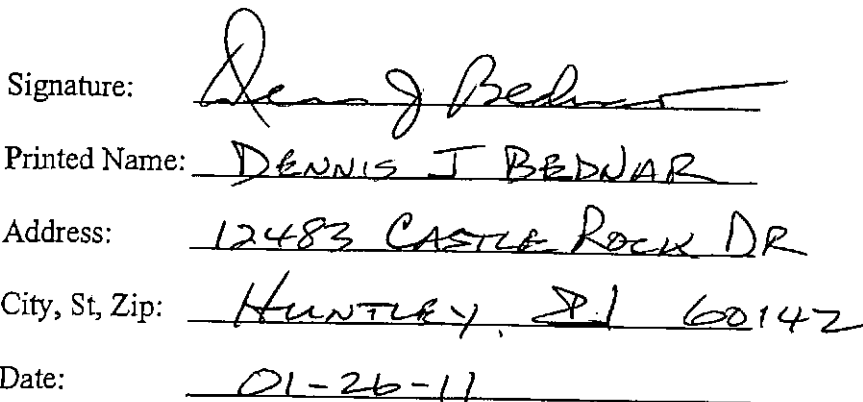 Signature: Dennis J Bednar
Printed Name: DENNIS J BEDNAR
Address: 12483 CASTLE ROCK DR
City, St, Zip: HUNTLEY, Il 60142
Date: 01-26-11